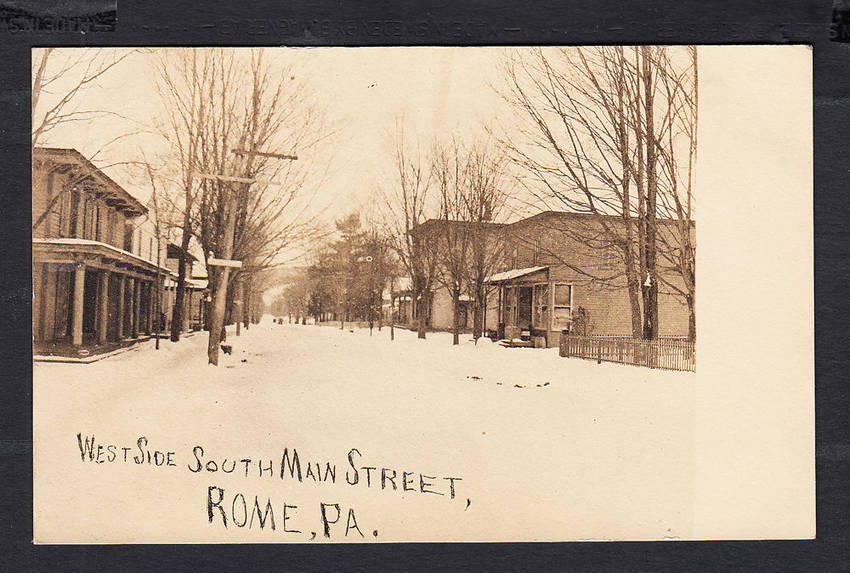 WEST SIDE SOUTH MAIN STREET,
ROME, PA.